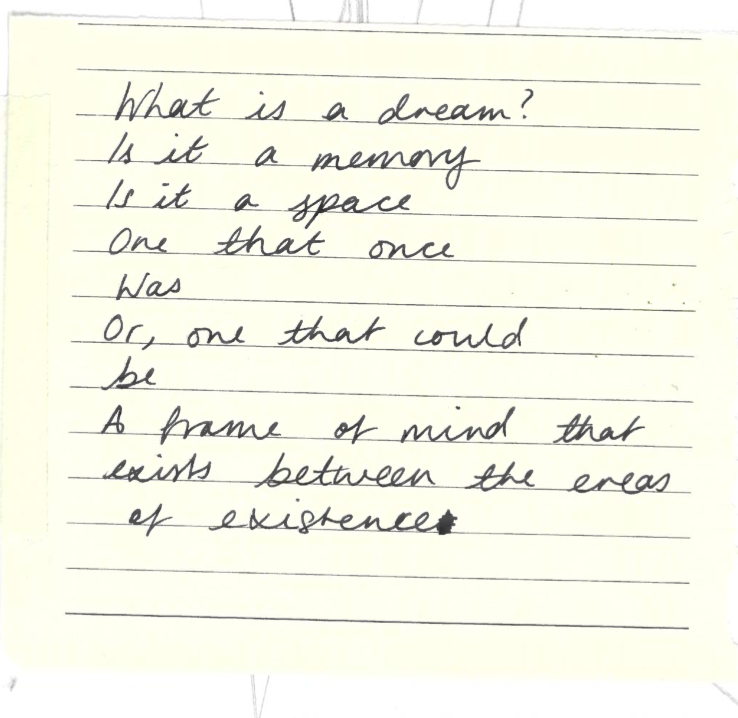 What is a dream?
Is it a memory
Is it a space
One that once
Was
Or, one that could
be
A frame of mind that
exists between the ereas
of existence